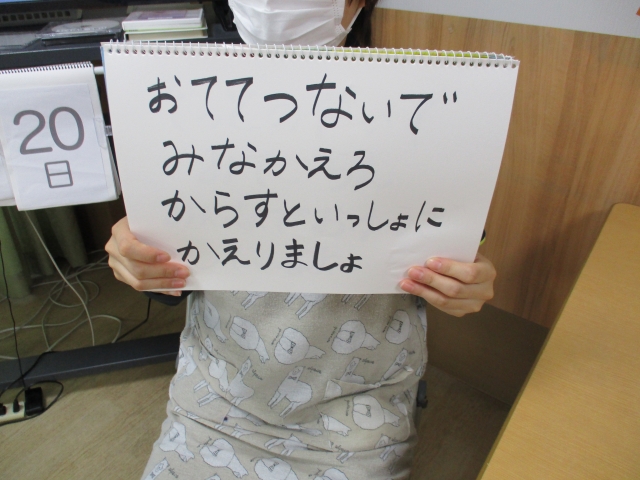 おててつないで
みなかえろ
からすといっしょに
かえりましょ
20
日